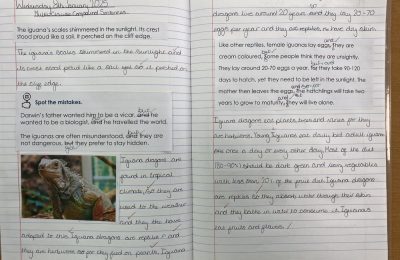 Wednesday 8th January 2025
Multi-clause Compound Sentences
The iguana's scales shimmered in the sunlight. Its crest
stood proud like a sail. It perched on the cliff edge.
The iguana's scales shimmered in the sunlight and
its crest stood proud like a sail so it perched on
the cliff edge.
Spot the mistakes.
but
Darwin's father wanted him to be a vicar, and he
wanted to be a biologist, and he travelled the world.
The iguanas are often misunderstood, and they are
not dangerous, but they prefer to stay hidden.
Iguana dragons are
found in tropical
climate, so they are
used to the weather
and they the have
adapted to this. Iguana dragons are reptiles and
they are herbivores so they feed on plants. Iguana
dragons live around 20 years and they lay 20-70
eggs per year and they are reptiles
and
Like other reptiles, female iguanas lay eggs, they are
but
cream coloured. Some people think they are unsightly.
They lay around 20-70 eggs a year, for they take 90-120
days to hatch, yet they need to be left in the sunlight. The
mother then leaves the eggs. The hatchlings will take two
years to grow to maturity, they will live alone.
Iguana dragons eat plants, fruit and
are herbivores. Young iguanas eat daily but adult iguanas
are once a day or every other day. Most of the diet
(80-90%) should be dark green and leafy vegetables
with less than 20% of the fruit diet. Iguana dragons
are reptiles so they absorb water through their skin
and they bathe in water to consume it. Iguanas
eat fruits and flowers.